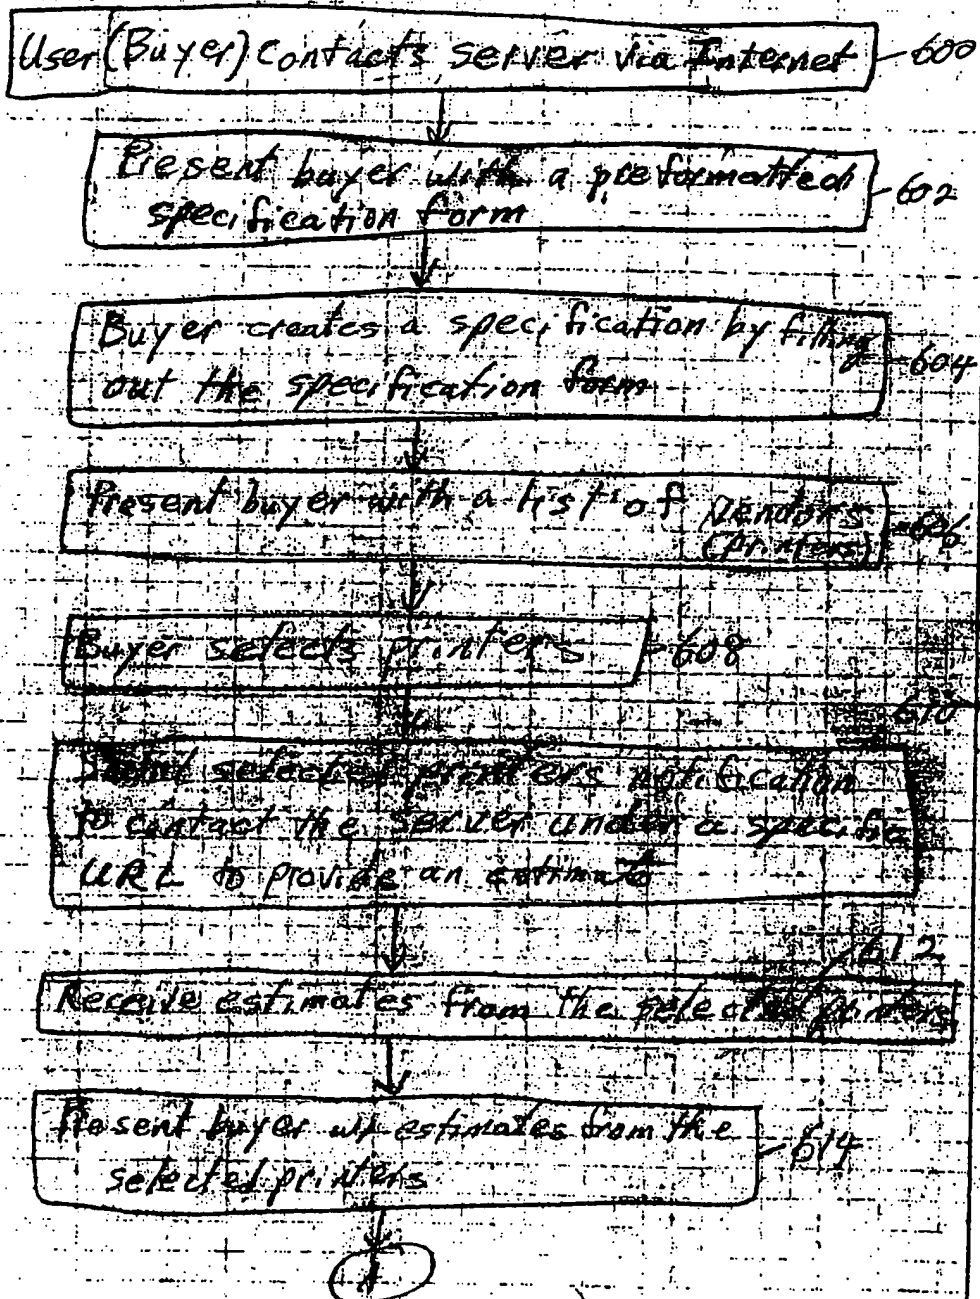 User (Buyer) Contacts server via Internet 600
Present buyer with a preformatted 602
specification form
Buyer creates a specification by filling 604
out the specification form
Present buyer with a list of vendors 606
(printers)
Buyer selects printers 608
610
Send selected printers notification
to contact the server under a specific
URL to provide an estimate
612
Receive estimates from the selected printers
Present buyer w/ estimates from the 614
selected printers